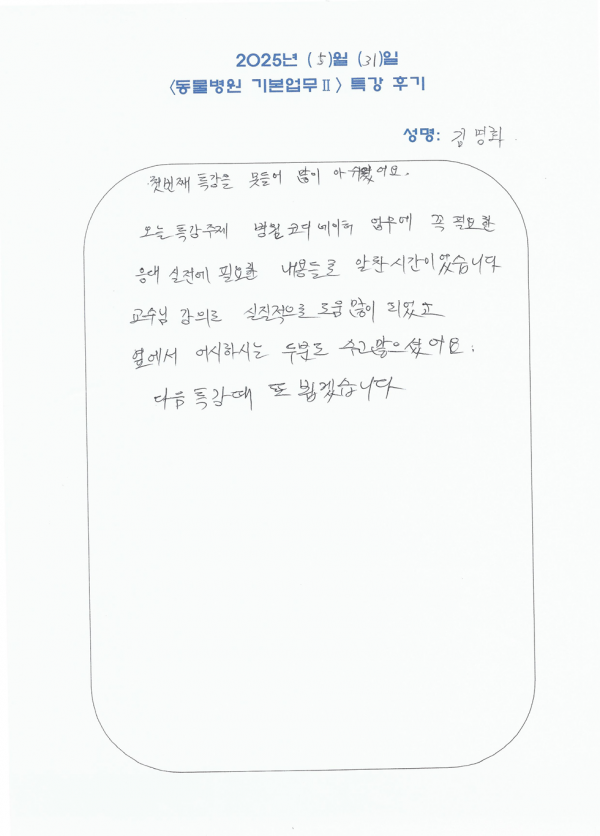 2025년 (5)월 (31)일
<동물병원 기본업무Ⅱ> 특강 후기
성명: 김명희
첫번째 특강을 못들어 많이 아쉬웠어요.
오늘 특강주제 병원 코디네이터 업무에 꼭 필요한
응대 실전에 필요한 내용들로 알찬시간이었습니다
교수님 강의로 실질적으로 도움 많이 되었고
옆에서 어시하시는 두분도 수고많으셨어요.
다음 특강때 또 뵙겠습니다